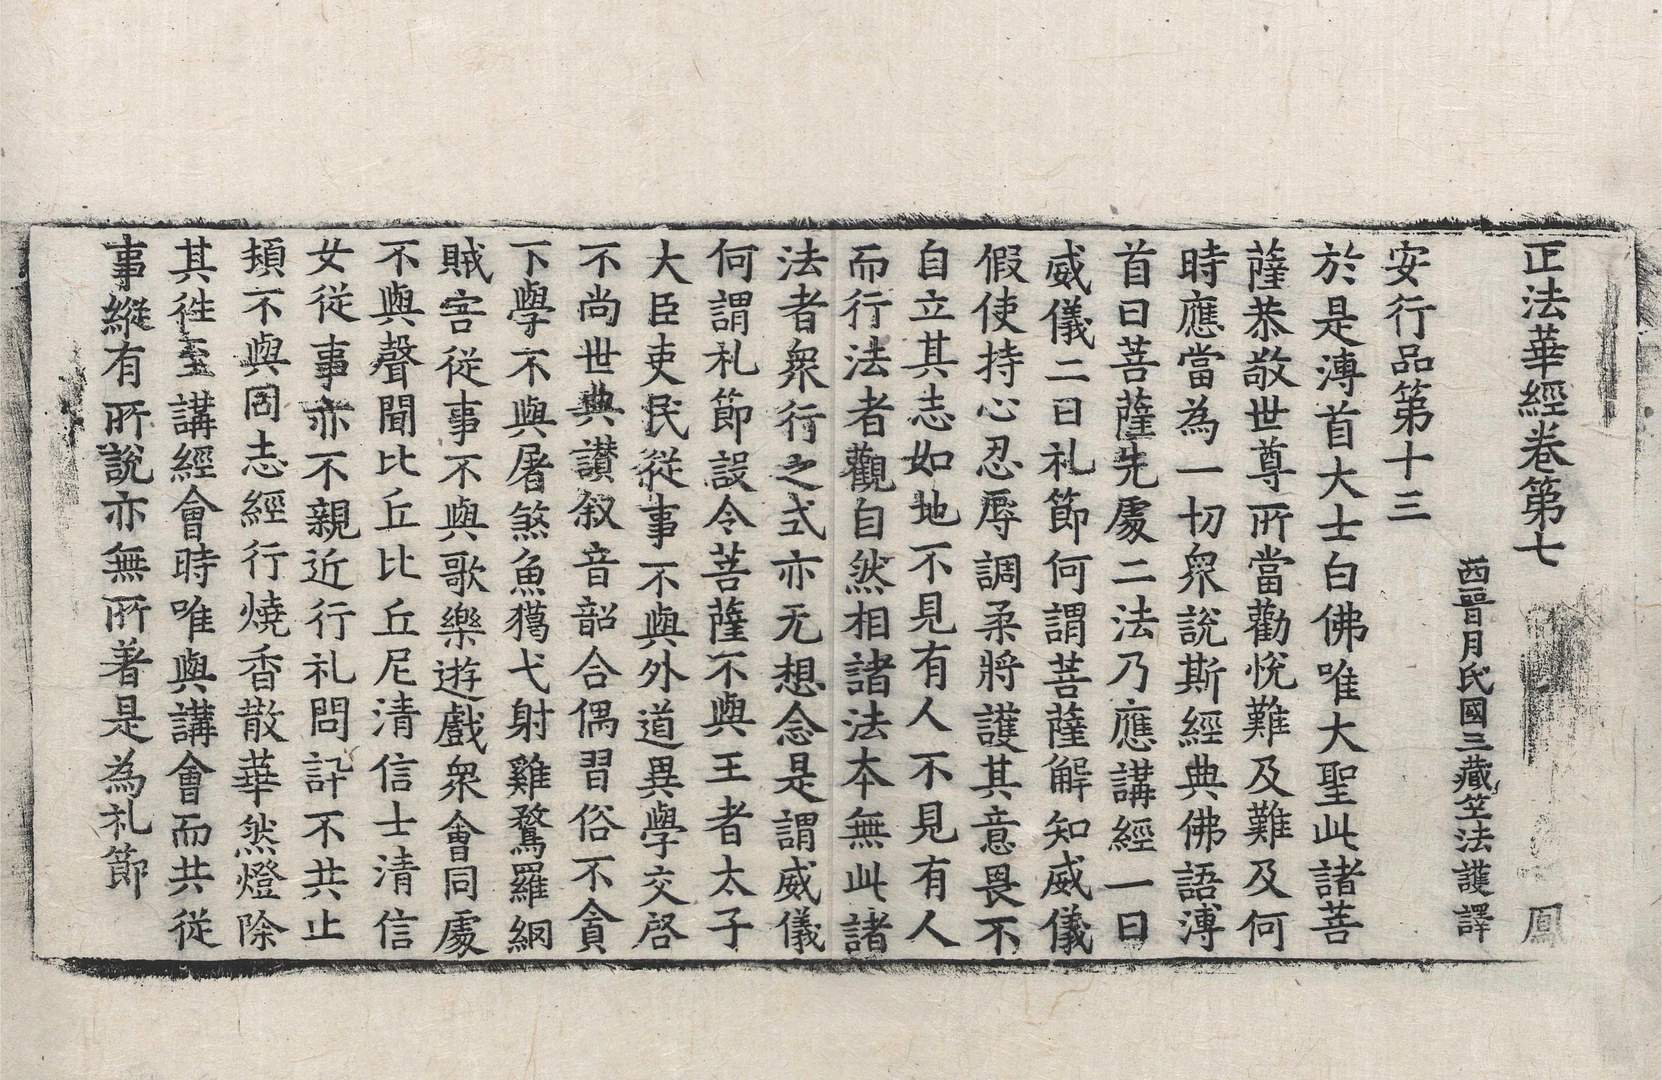 正法華經卷第七　鳳
西晉月氏國三藏竺法護譯
安行品第十三
於是溥首大士白佛唯大聖此諸菩
薩恭敬世尊所當勸悅難及難及何
時應當為一切衆說斯經典佛語溥
首曰菩薩先處二法乃應講經一曰
威儀二曰礼節何謂菩薩解知威儀
假使持心忍辱調柔將護其意畏不
自立其志如地不見有人不見有人
而行法者觀自然相諸法本無此諸
法者衆行之式亦无想念是謂威儀
何謂礼節設令菩薩不與王者太子
大臣吏民從事不與外道異學交啓
不尚世典讃叙音韶合偶習俗不貪
下學不與屠煞魚獦弋射雞鶩羅網
賊害從事不與歌樂遊戲衆會同處
不與聲聞比丘比丘尼清信士清信
女從事亦不親近行礼問訊不共止
頓不與同志經行燒香散華然燈除
其徃至講經會時唯與講會而共從
事縱有所說亦無所著是為礼節